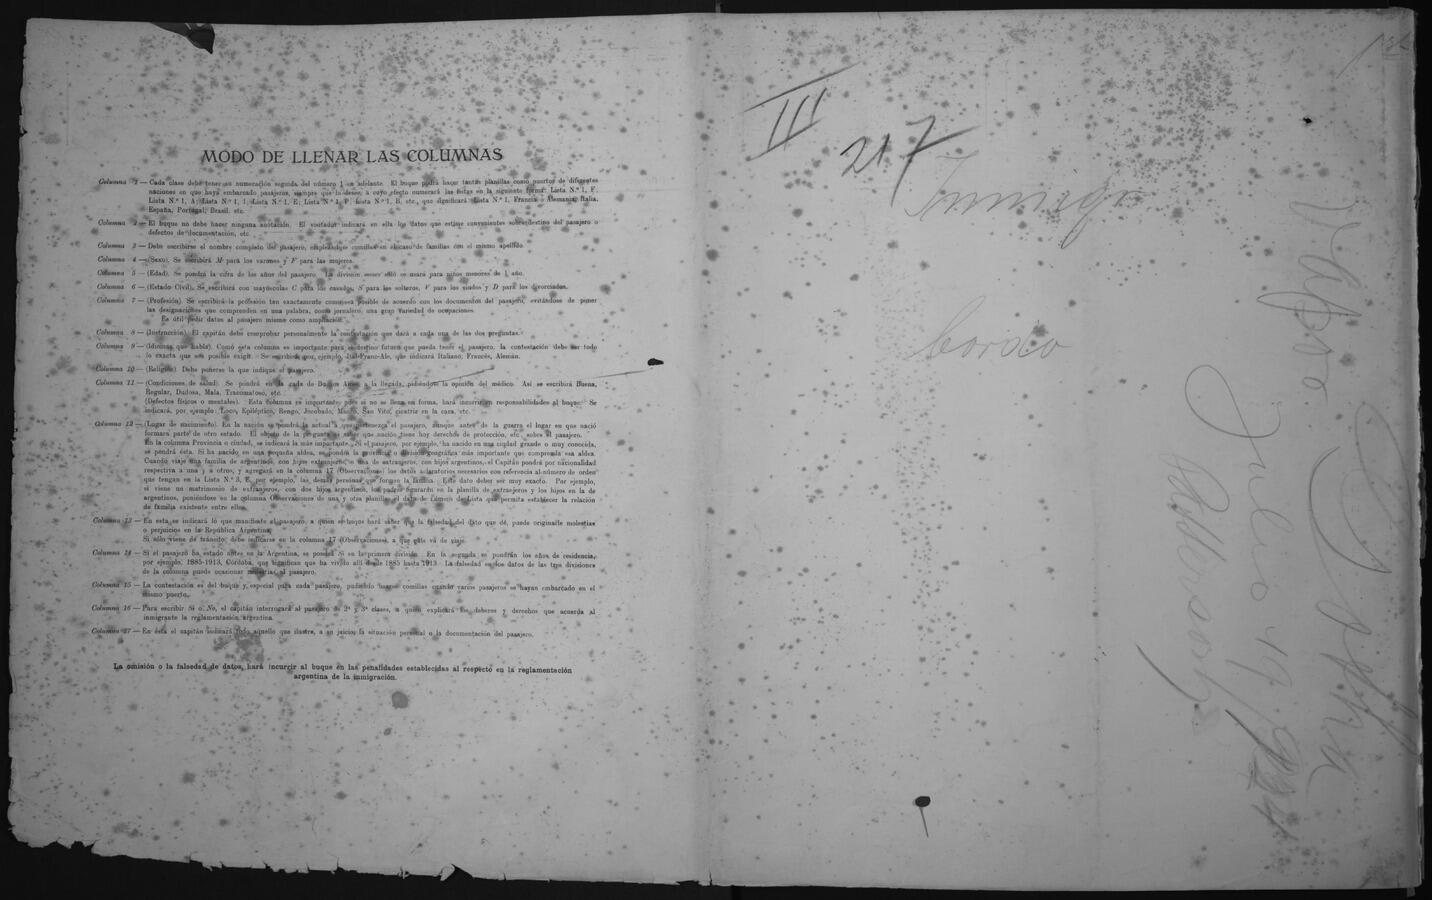 MODO DE LLENAR LAS COLUMNAS
Columna 1 — Cada clase debe tener su numeración seguida del número 1 en adelante. El buque podrá hacer tantas planillas como puertos de diferentes
naciones en que haya embarcado pasajeros, siempre que lo desee, a cuyo efecto numerará las listas en la siguiente forma: Lista N.º 1, F.
Lista N.º 1, A; Lista N.º 1, I; Lista N.º 1, E; Lista N.º 1, P; Lista N.º 1, B, etc., que significará Lista N.º 1, Francia - Alemania, Italia,
España, Portugal, Brasil, etc.
Columna 2 — El buque no debe hacer ninguna anotación. El visitador indicará en ella los datos que estime convenientes sobre destino del pasajero o
defectos de documentación, etc.
Columna 3 — Debe escribirse el nombre completo del pasajero, empleándose comillas en el caso de familias con el mismo apellido
Columna 4 — (Sexo). Se escribirá M para los varones y F para las mujeres.
Columna 5 — (Edad). Se pondrá la cifra de los años del pasajero. La división meses sólo se usará para niños menores de 1 año.
Columna 6 — (Estado Civil). Se escribirá con mayúsculas C para los casados, S para los solteros, V para los viudos y D para los divorciados.
Columna 7 — (Profesión). Se escribirá la profesión tan exactamente como sea posible de acuerdo con los documentos del pasajero, evitándose de poner
las designaciones que comprenden en una palabra, como jornalero, una gran variedad de ocupaciones.
Es útil pedir datos al pasajero mismo como ampliación.
Columna 8 — (Instrucción). El capitán debe comprobar personalmente la contestación que dará a cada una de las dos preguntas.
Columna 9 — (Idiomas que habla). Como esta columna es importante para el destino futuro que pueda tener el pasajero, la contestación debe ser todo
lo exacta que sea posible exigir. Se escribirá, por ejemplo, Ital-Franc-Ale, que indicará Italiano, Francés, Alemán.
Columna 10 — (Religión). Debe ponerse la que indique el pasajero.
Columna 11 — (Condiciones de salud). Se pondrá en la rada de Buenos Aires, a la llegada, pidiéndose la opinión del médico. Así se escribirá Buena,
Regular, Dudosa, Mala, Tracomatoso, etc.
(Defectos físicos o mentales). Esta columna es importante, pues si no se llena en forma, hará incurrir en responsabilidades al buque. Se
indicará, por ejemplo: Loco, Epiléptico, Rengo, Jorobado, Manco, San Vito, cicatriz en la cara, etc.
Columna 12 — (Lugar de nacimiento). En la nación se pondrá la actual a que pertenezca el pasajero, aunque antes de la guerra el lugar en que nació
formara parte de otro estado. El objeto de la pregunta es saber que nación tiene hoy derechos de protección, etc. sobre el pasajero.
En la columna Provincia o ciudad, se indicará la más importante. Si el pasajero, por ejemplo, ha nacido en una ciudad grande o muy conocida,
se pondrá ésta. Si ha nacido en una pequeña aldea, se pondrá la provincia o división geográfica más importante que comprenda esa aldea.
Cuando viaje una familia de argentinos, con hijos extranjeros, o una de extranjeros, con hijos argentinos, el Capitán pondrá por nacionalidad
respectiva a uno y a otros, y agregará en la columna 17 (Observaciones) los datos aclaratorios necesarios con referencia al número de orden
que tengan en la Lista N.º 3, E, por ejemplo, las demás personas que forman la familia. Este dato deber ser muy exacto. Por ejemplo,
si viene un matrimonio de extranjeros, con dos hijos argentinos, los padres figurarán en la planilla de extranjeros y los hijos en la de
argentinos, poniéndose en la columna Observaciones de una y otra planilla, el dato de número de Lista que permita establecer la relación
de familia existente entre ellos.
Columna 13 — En esta se indicará lo que manifieste el pasajero, a quien el buque hará saber que la falsedad del dato que dé, puede originarle molestias
o perjuicios en la República Argentina.
Si sólo viene de tránsito, debe indicarse en la columna 17 (Observaciones), a que país vá de viaje.
Columna 14 — Si el pasajero ha estado antes en la Argentina, se pondrá Sí en la primera división. En la segunda se pondrán los años de residencia,
por ejemplo, 1885-1913, Córdoba, que significan que ha vivido allí desde 1885 hasta 1913. La falsedad en los datos de las tres divisiones
de la columna puede ocasionar molestias al pasajero.
Columna 15 — La contestación es del buque y especial para cada pasajero, pudiendo usarse comillas cuando varios pasajeros se hayan embarcado en el
mismo puerto.
Columna 16 — Para escribir Sí o No, el capitán interrogará al pasajero de 2ª y 3ª clases, a quien explicará los deberes y derechos que acuerda al
inmigrante la reglamentación argentina.
Columna 17 — En ésta el capitán indicará todo aquello que ilustre, a su juicio, la situación personal o la documentación del pasajero.
La omisión o la falsedad de datos, hará incurrir al buque en las penalidades establecidas al respecto en la reglamentación
argentina de la inmigración.
III
217
bordo
Vapor
Julio 4/924